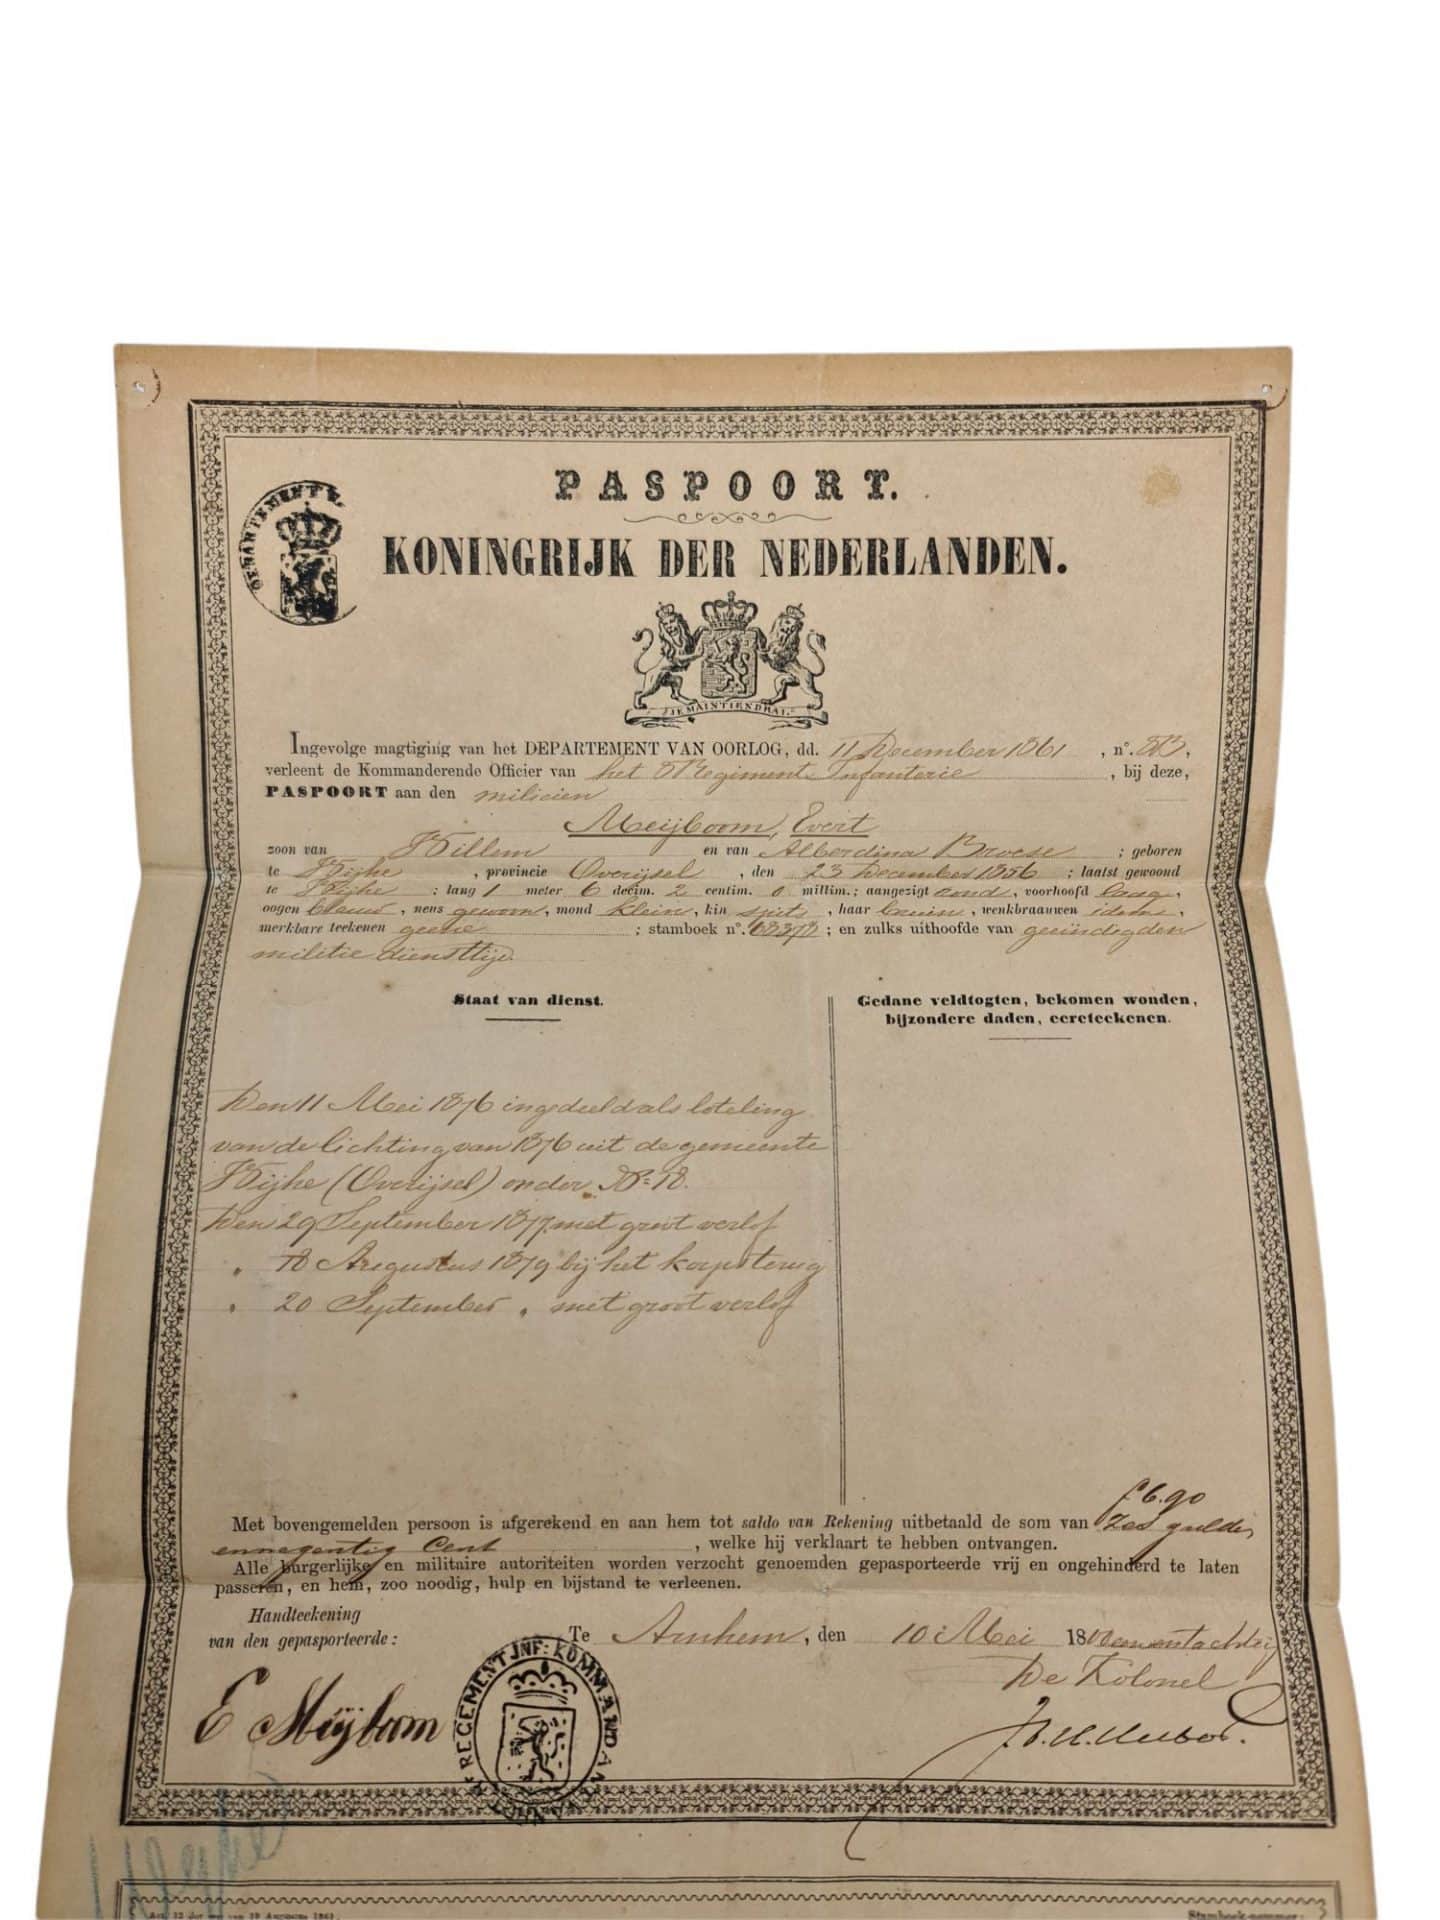 PASPOORT.
KONINGRIJK DER NEDERLANDEN.
JE MAINTIENDRAI
Ingevolge magtiging van het DEPARTEMENT VAN OORLOG, dd. 11 December 1861, n°.
verleent de Kommanderende Officier van het 8 Regiment Infanterie, bij deze,
PASPOORT aan den milicien
Meijboom, Evert
zoon van Willem en van Alberdina Broese; geboren
te Wijhe, provincie Overijsel, den 23 December 1856; laatst gewoond
te Wijhe; lang 1 meter 6 decim. 2 centim. 0 millim.; aangezigt rond, voorhoofd laag,
oogen blauw, neus gewoon, mond klein, kin spits, haar bruin, wenkbraauwen idem,
merkbare teekenen geene; stamboek n°.; en zulks uithoofde van geëindigden
militie diensttijd.
Staat van dienst.
Gedane veldtogten, bekomen wonden,
bijzondere daden, eereteekenen.
Den 11 Mei 1876 ingedeeld als loteling
van de lichting van 1876 uit de gemeente
Wijhe (Overijsel) onder N° 18.
Den 29 September 1877 met groot verlof
" 18 Augustus 1879 bij het korps terug
" 20 September " met groot verlof
f 6.90
Met bovengemelden persoon is afgerekend en aan hem tot saldo van Rekening uitbetaald de som van Zes gulden
en negentig Cent, welke hij verklaart te hebben ontvangen.
Alle burgerlijke en militaire autoriteiten worden verzocht genoemden gepasporteerde vrij en ongehinderd te laten
passeren, en hem, zoo noodig, hulp en bijstand te verleenen.
Handteekening
van den gepasporteerde:
Te Arnhem, den 10 Mei 18 een en tachtig
De Kolonel
E Meijboom
REGEMENT INF: KOMMANDANT
Wijhe
Stamboek-nummer: